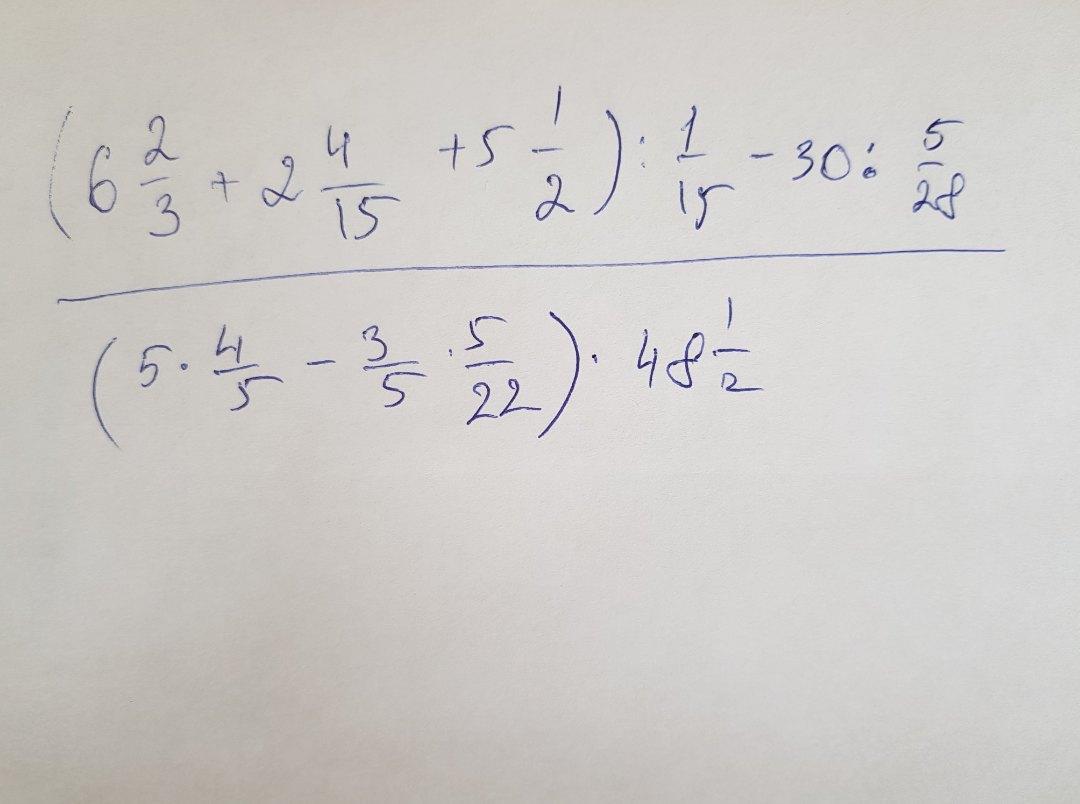 (6 2/3 + 2 4/15 + 5 1/2) : 1/15 - 30 : 5/28
(5 · 4/5 - 3/5 · 5/22) · 48 1/2